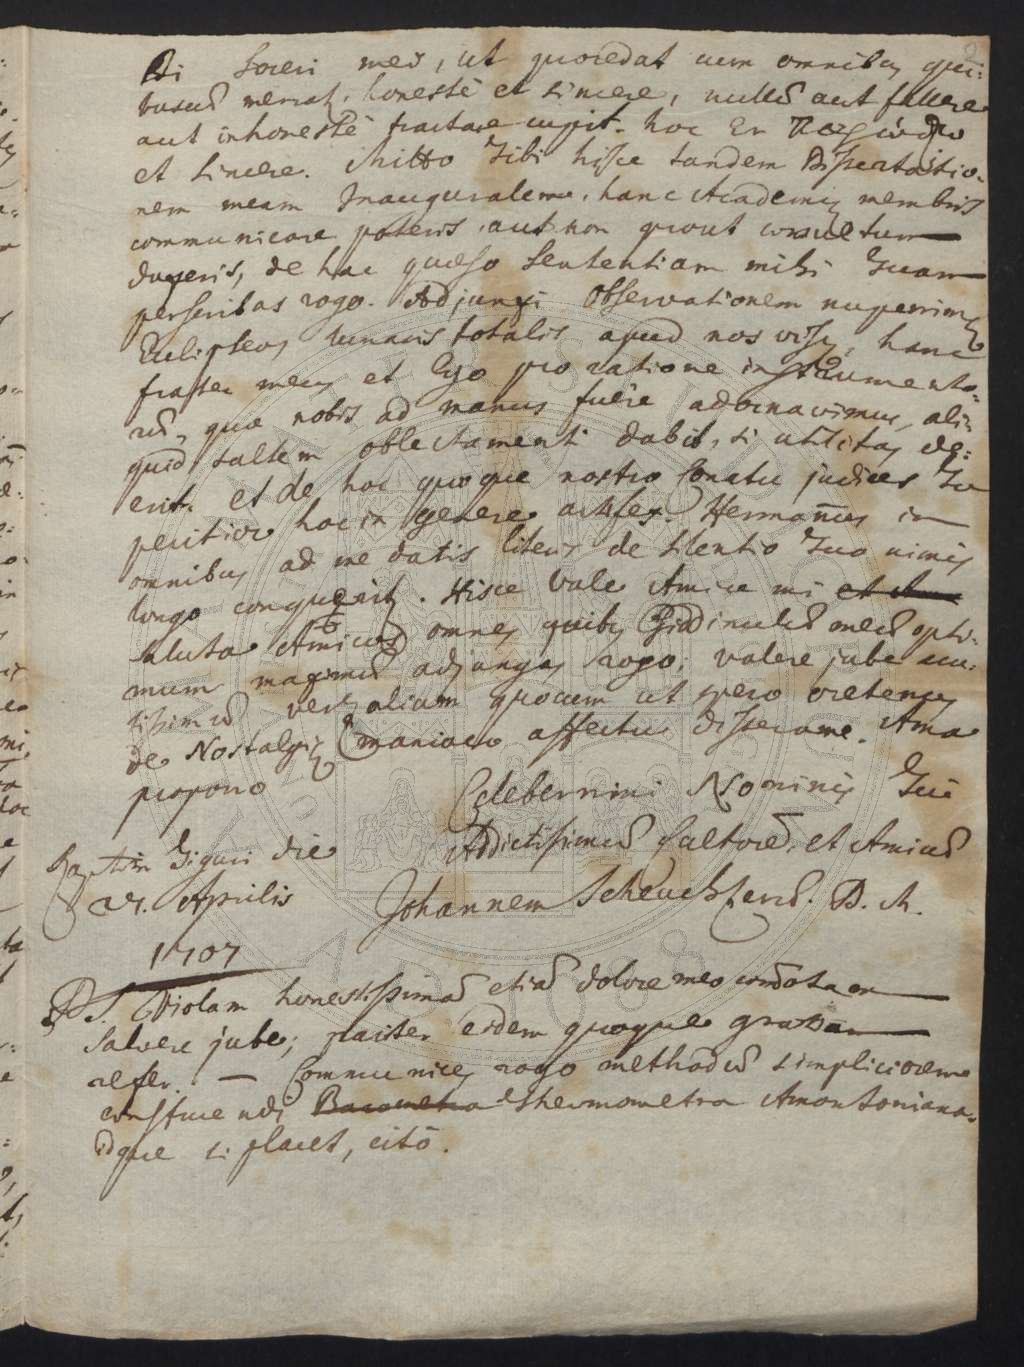 Di Soceri mei, ut procedat cum omnibus qui:
buscũ mercat. honestè et sincere, nullũ aut fallere
aut inhonestè tractare cupit. hoc En
et sincere. Mitto Tibi hisce tandem Dissertatio-
nem meam Inauguralem, hanc Academiæ membris
communicare poteris, aut non prout consultum
duxeris, de hac quæso Sententiam mihi Tuam
perscribas rogo. Adjunxi Observationem nuperrimæ
Eclipseos Lunaris totalis apud nos visæ, hanc
frater meus et Ego pro ratione instrumento-
rũ, quæ nobis ad manus fuêre adornavimus, ali-
quid saltem oblectamenti dabit, si utilitas de:
erit. et de hoc quoque nostro Conatu judices Tu
peritior hoc in genere artifex. Hermañus in
omnibus ad me datis literis de silentio Tuo nimis
longo conqueritur. Hisce Vale Amice mi
saluta Amicos omnes quibus meũ opti-
mum maximũ adjungas rogo; valere jube
quocum ut spero
de Nostalgiæ maniaco affectu disserame. Ama
propono
Celeberrimi Nominis Tui
Addictissimũ Cultorẽ, et Amicũ
Johannem Scheuchzerũ. D. M.
Tiguri die
Aprilis
1707
P.S. Violam honestissimã etiã dolore meo
Salvere jube; pariter eidem quoque gratiam
refer. — Communices rogo methodũ simpliciorem
construendi Barometra Thermometra Amontoniana,
idque si placet, citò.